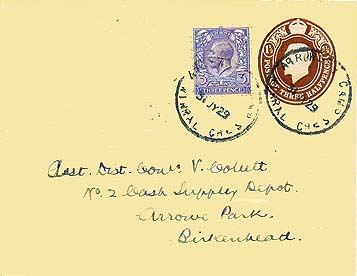 3 3
THREE PENCE
POSTAGE THREE HALFPENCE
ARROWE CAMP
31 JY 29
WIRRAL CHES
ARROWE CAMP
29
WIRRAL CHES
Asst. Dist. Comr. V.
No. 2 Cash Supply Depot.
Arrowe Park.
Birkenhead.